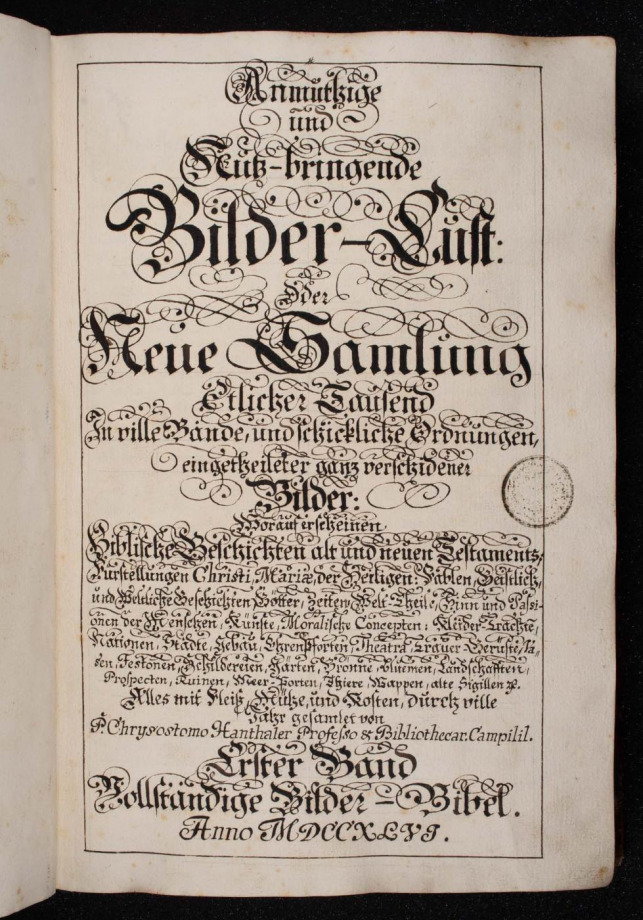 Anmuthige
und
Nutz-bringende
Bilder-Lust:
Oder
Neue Samlung
Etlicher Tausend
In ville Bände, und schickliche Ordnungen,
eingetheileter ganz verschidener
Bilder:
Worauf erscheinen
Biblische Geschichten alt und neuen Testaments,
Fürstellungen Christi, Mariæ, der Heiligen: Fablen, Geistlich,
und Weltliche Geschichten Götter, Zeiten, Welt-Theile, Sinn und Passi-
onen der Menschen, Künste, Moralische Concepten: Kleider-Trachte,
Nationen, Städte, Gebäu, Ehrenpforten, Theatra, Trauer Gerüste, Va-
sen, Festonen, Schildereien, Gärten, Bronne, Bluemen, Landschafften,
Prospecten, Ruinen, Meer-Porten, Thiere, Wappen, alte Sigillen &c.
Alles mit Fleiß, Mühe, und Kosten, durch ville
Jahr gesamlet von
P. Chrysostomo Hanthaler Professo & Bibliothecar. Campilil.
Erster Band
Vollständige Bilder-Bibel.
Anno MDCCXLVI.